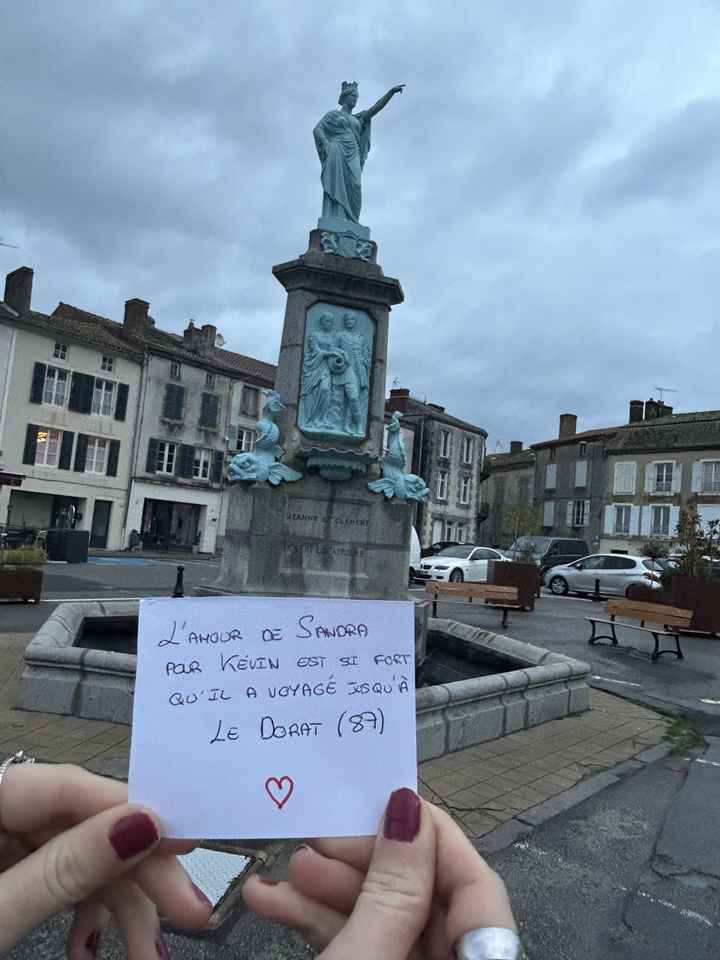 JEANNE ET CLÉMENT
L'AMOUR DE SANDRA
POUR KÉVIN EST SI FORT
QU'IL A VOYAGÉ JUSQU'À
LE DORAT (87)